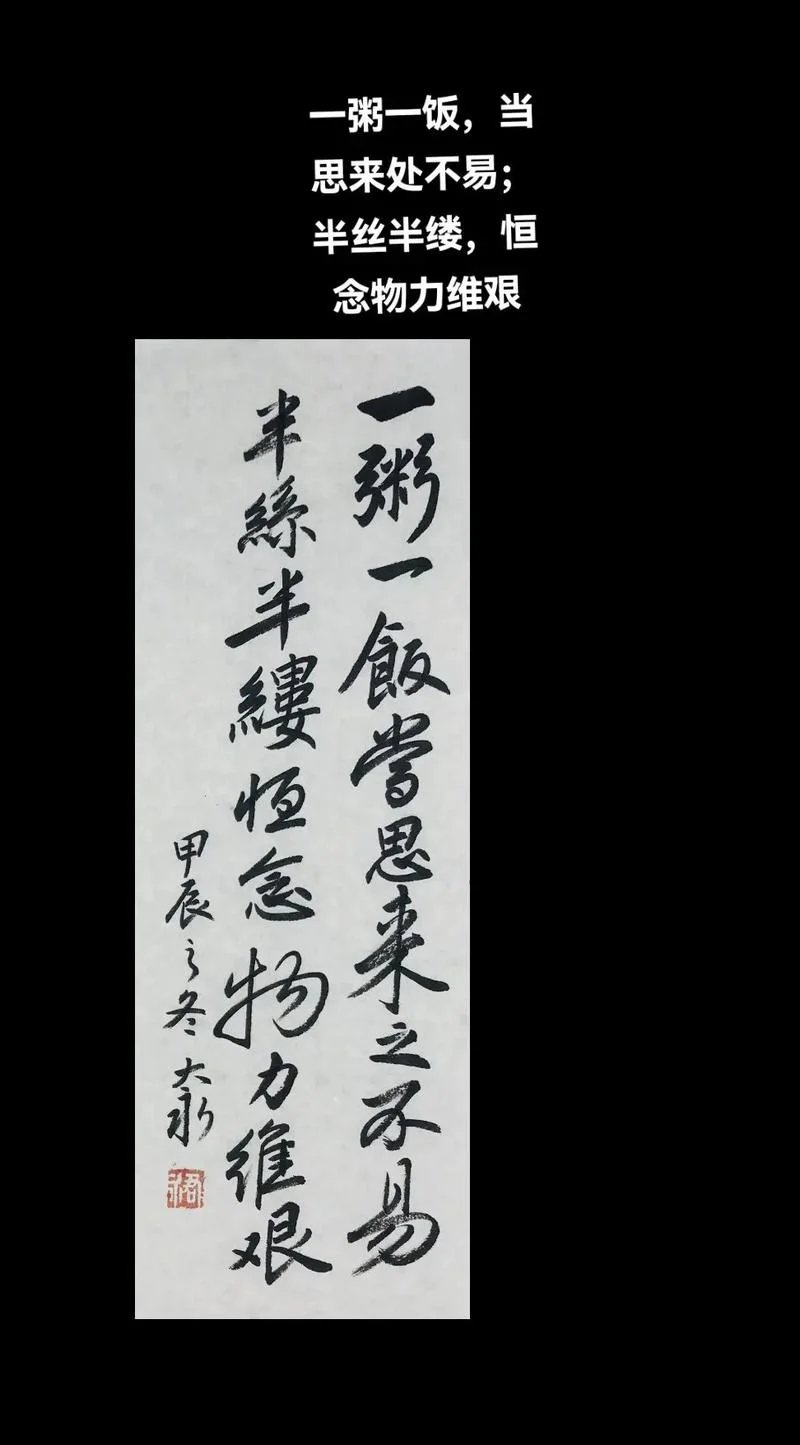 一粥一饭，当
思来处不易；
半丝半缕，恒
念物力维艰
一粥一飯當思来之不易
半絲半縷恒念物力維艱
甲辰之冬 大永